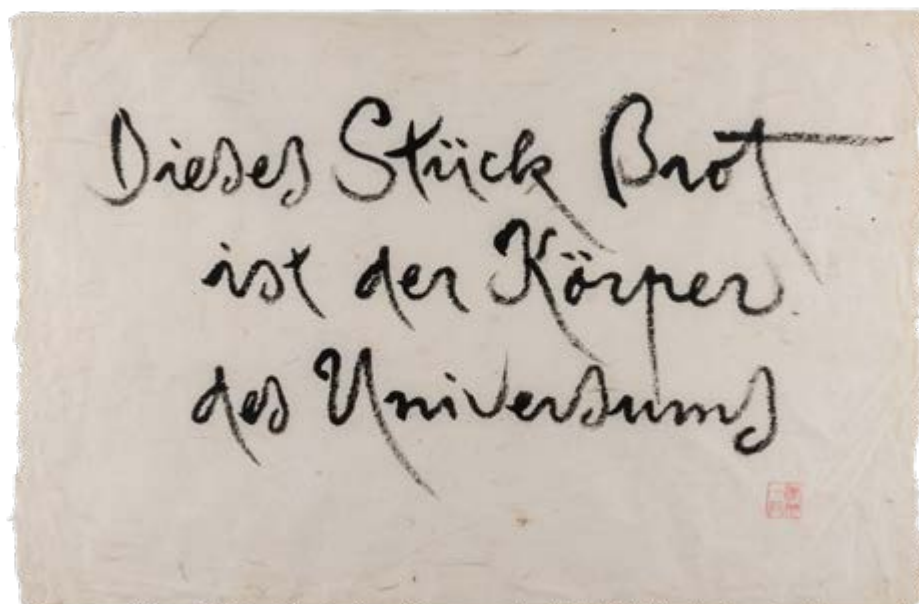 Dieses Stück Brot
ist der Körper
des Universums